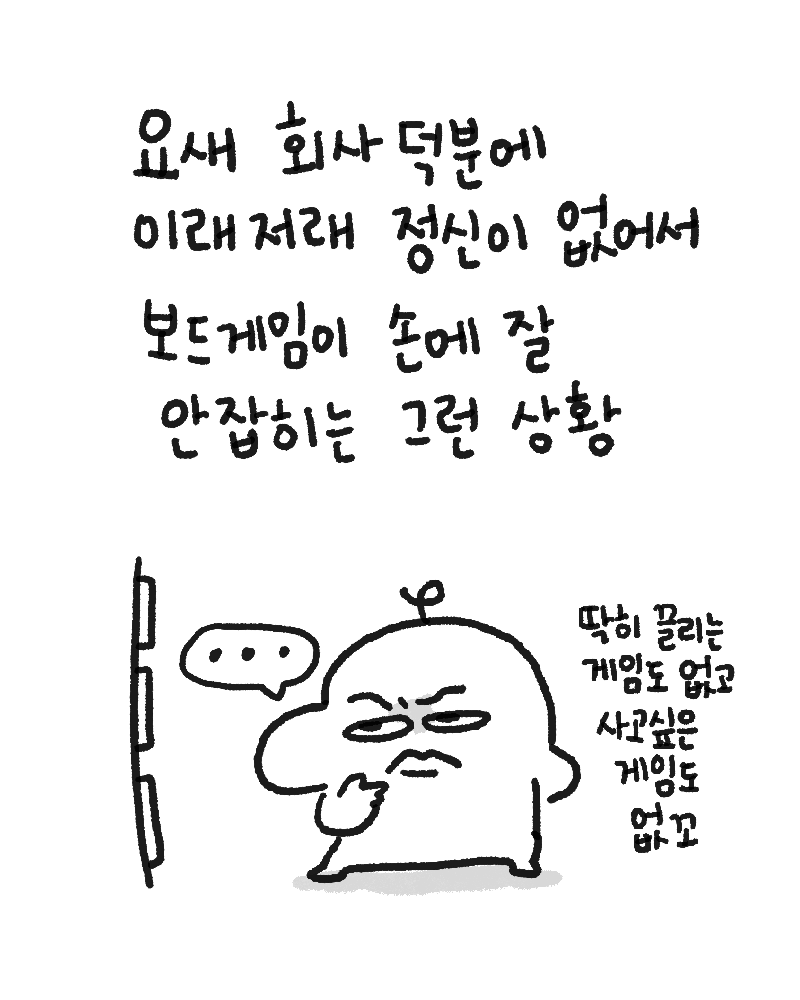 요새 회사 덕분에
이래저래 정신이 없어서
보드게임이 손에 잘
안잡히는 그런 상황
...
딱히 끌리는
게임도 없고
사고싶은
게임도
없꼬